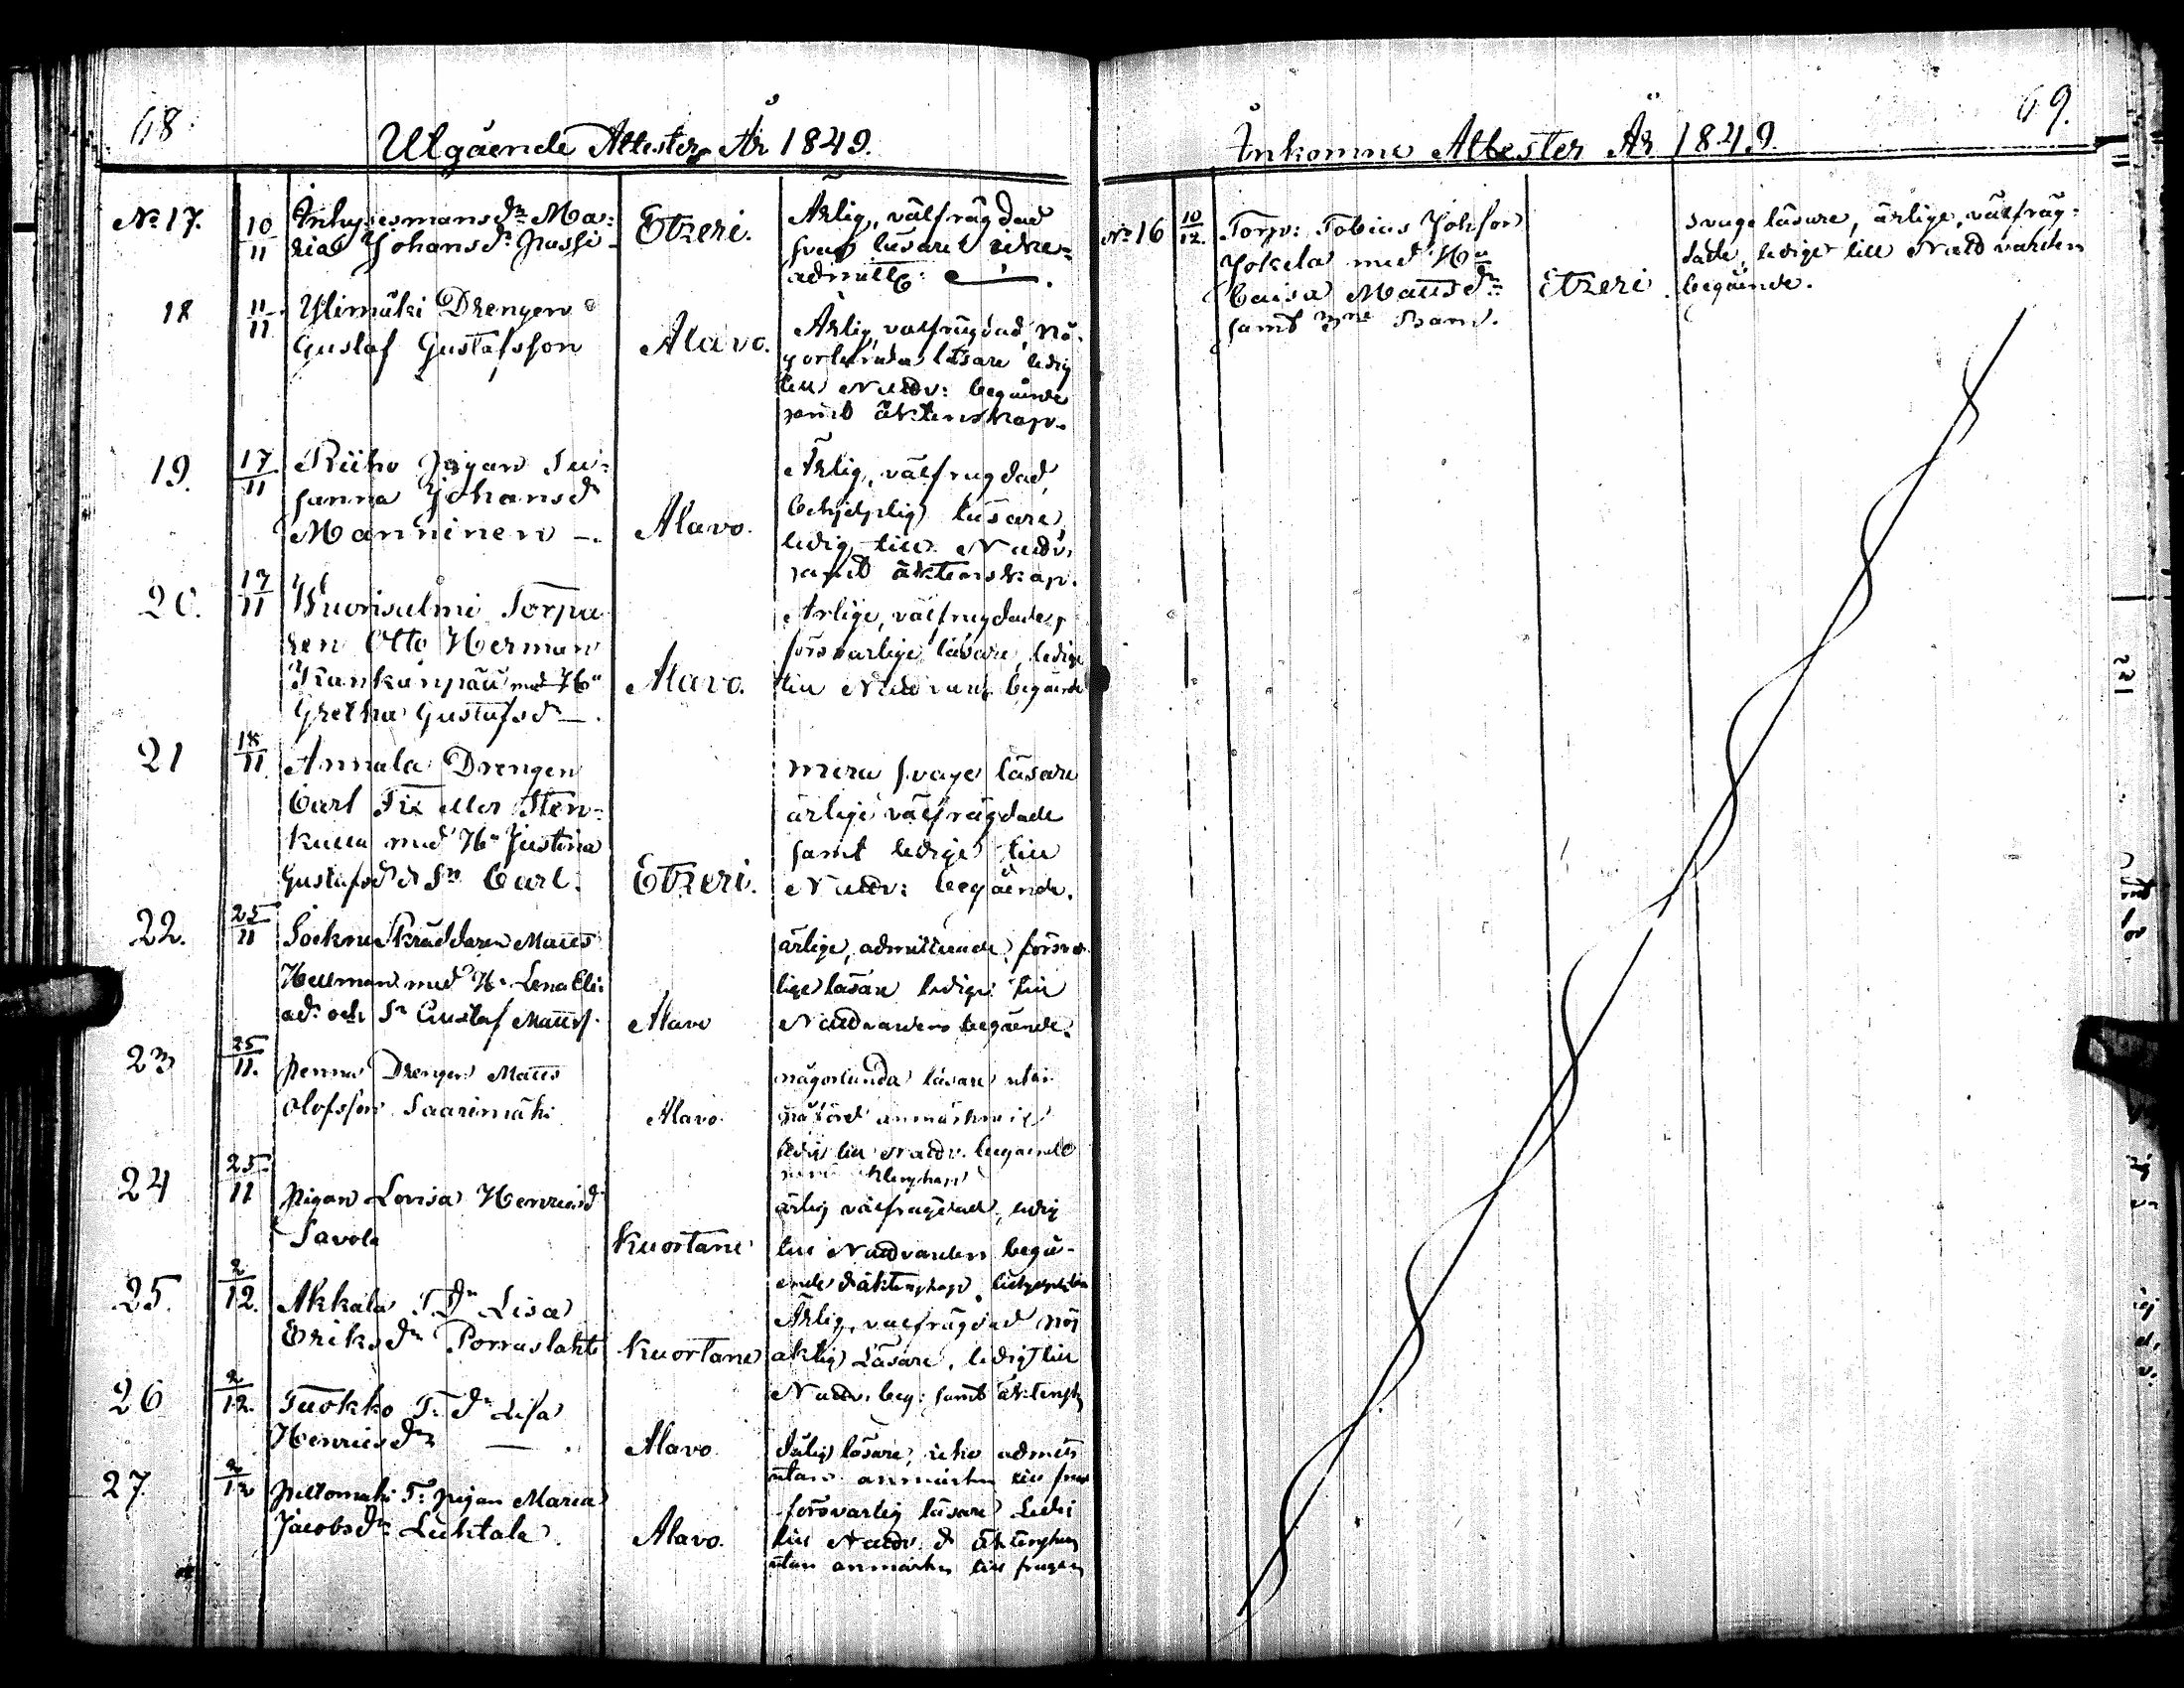 68
Utgående Attester År 1849.
No 17.
10/11
Inhysesmansdr Ma=
ria Johansdr Jussi
Etzeri.
Ärlig, välfrägdad
svag läsare icke
admitt:
18
11/11
Ylimäki Drengen
Gustaf Gustafsson
Alavo.
Ärlig, välfrägdad, nå-
gorlunda läsare ledig
till Nattv: begående
samt äktenskap.
19.
17/11
Riiho Pigan Su=
sanna Johansdr
Manninen —.
Alavo.
Ärlig, välfrägdad,
behjelplig läsare,
ledig till Nattv.
samt äktenskap.
20.
17/11
Wuorisalmi Torpa
ren Otto Herman
Kankanpää med Hu
Gretha Gustafsdr —.
Alavo.
Ärlige, välfrägdade,
försvarlige läsare, ledige
till Nattvard. begående
21
18/11
Annala Drengen
Carl Fix eller Sten=
kulla med Hu Justina
Gustafsdr & Sn Carl.
Etzeri.
mera svage läsare
ärlige välfrägdade
samt ledige till
Nattv: begående.
22.
25/11
Sockne Skräddaren Matts
Hellman med Hu Lena Eli=
asdr och Sn Gustaf Mattss.
Alavo
ärlige, admitterade, försvar
lige läsare ledige till
Nattvardens begående.
23
25/11.
Drengen Matts
Olofsson Saarimäki
Alavo.
någorlunda läsare utan
påförd anmärkning
ledig till Nattv. begående
24
25/11
Pigan Lovisa Henricsdr
Savola
Kuortane
ärlig välfrägdad, ledig
till Nattvardens begå-
ende & äktenskap,
25.
2/12.
Akkala T. Dr Lisa
Eriksdr Porraslahti
Kuortane
Ärlig, välfrägdad nöj
aktig Läsare, ledig till
Nattv. beg: samt äktensk
26
2/12.
Tuokko T. dr Lisa
Henricsdr — .
Alavo.
dålig läsare, icke admitt
utan anmärkn till
27.
2/12
Peltomäki T: pigan Maria
Jacobsdr Luhtala
Alavo.
försvarlig läsare Ledi
till Nattv. & äktenskap
utan anmärkn till frägden
69.
Inkomne Attester År 1849.
No 16
10/12.
Torp: Tobias Johsson
Jokela med Hu
Caisa Mattsdr
samt 3ne Barn.
Etzeri.
svage läsare, ärlige, välfräg=
dade, ledige till Nattvarden
begående.